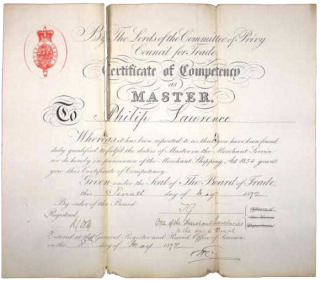 By The Lords of the Committee of Privy
Council for Trade
Certificate of Competency
as
MASTER.
To Philip Lawrence
Whereas it has been reported to us that you have been found
duly qualified to fulfil the duties of Master in the Merchant Service
we do hereby in pursuance of the Merchant Shipping Act 1854 grant
you this Certificate of Competency.
Given under the Seal of The Board of Trade
this day of May 1872
By order of the Board
One of the
to the Board
Registrar
Entered at the General Register and Record Office of Seamen
on the day of May 1872